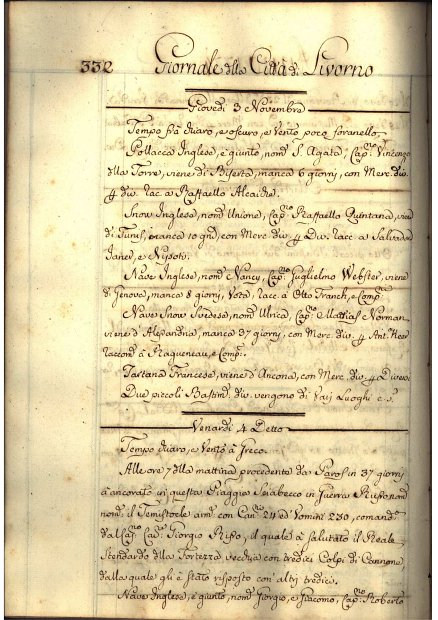 332 Giornale della Città di Livorno
Giovedì 3 Novembre
Tempo frà chiaro, e oscuro, e Vento poco foranello,
Pollacca Inglese, è giunto, nom.ª S. Agata, Cap.no Vincenzo
della Torre, viene di Biserta, manca 6 giorni, con Merc. div.
p div. rac. a Raffaello Alcaide.
Snow Inglese, nom.º Unione, Cap.no Raffaello Quintana, viene
di Tunis, manca 10 gni, con Merc. div. p Div. racc. a Salvador
Janer, e Nipoti.
Nave Inglese, nom.ª Nancy, Cap.no Guglielmo Webster, viene
di Genova, manca 8 giorni, Vota, racc. à Otto Franck, e Comp.
Nave Snow Svedesa, nom.ª Ulrica, Cap.no Mattias Norman
viene d'Alexandria, manca 37 giorni, con Merc. div. p Ant.
raccom. à Ragueneau, e Comp.
Tartana Francese, viene d'Ancona, con Merc. div. p Diversi
Due piccoli Bastim. div. vengono di Varj Luoghi c. s.
Venardì 4 Detto
Tempo chiaro, e Vento à Greco.
Alle ore 7 della mattina procedente da Paros in 37 giorni
à ancorato in questa Piaggia Sciabecco in Guerra Russo nom
nom.º il Temistocle arm. con Can. 24 e d'Uomini 230, comand.
dal Cap. Cav. Giorgio Rizo, il quale à salutato il Reale
Stendardo della Fortezza vecchia con tredici Colpi di Cannone
dalla quale gli è stato risposto con altri tredici.
Nave Inglese, è giunto, nom.ª Giorgio, e Giacomo, Cap.no Roberto